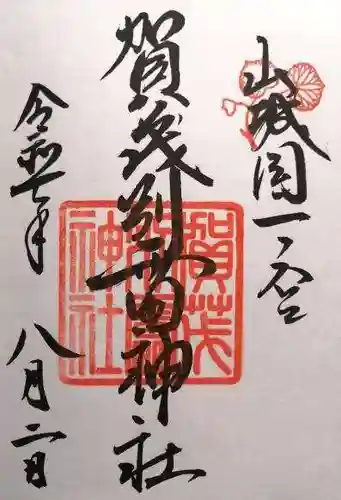 山城國一之宮
賀茂別雷神社
令和七年
八月二日
賀茂
別雷
神社